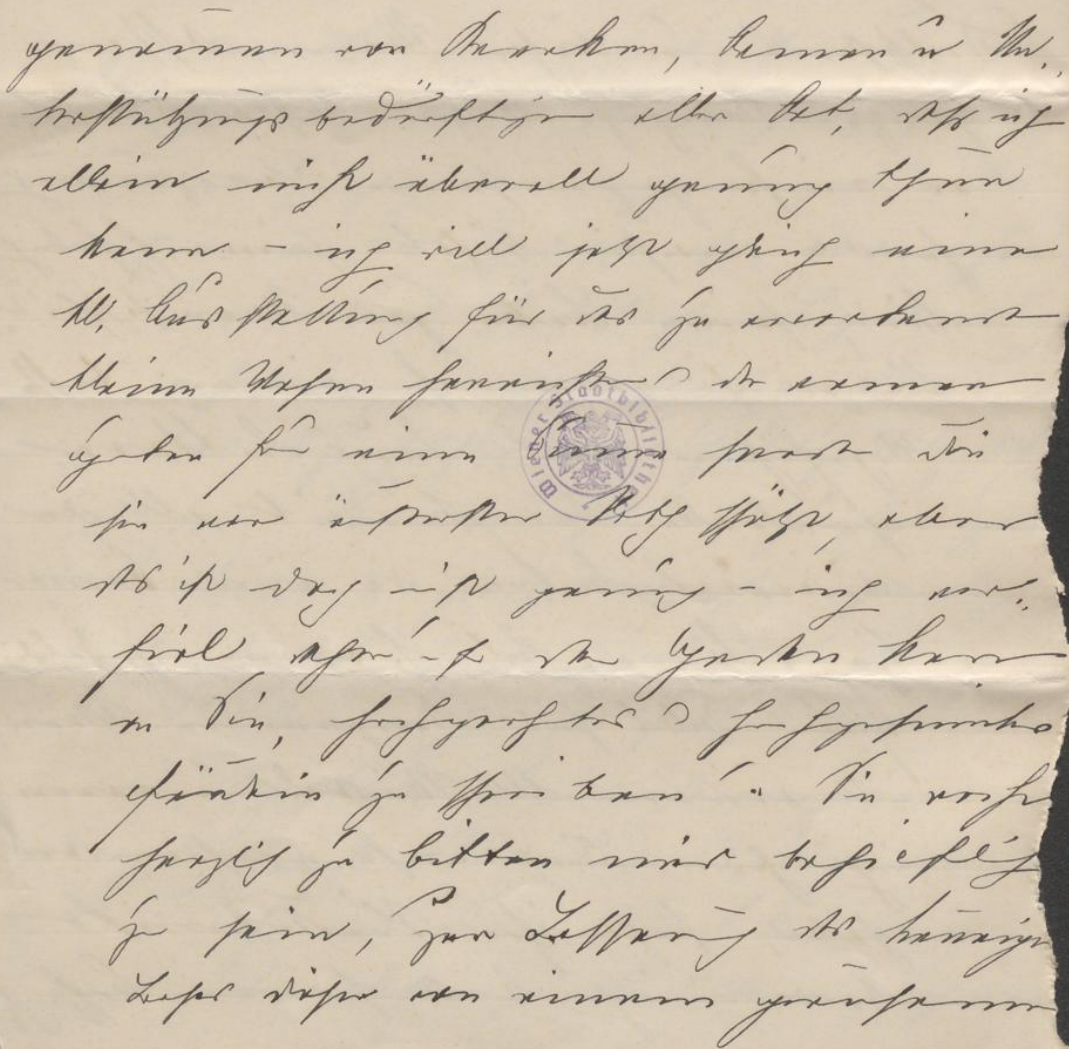 genom̄en von Kranken, Armen u Un-
terstützungsbedürftigen aller Art, daß ich
allein nicht überall genug thun
kann – ich will jetzt gleich eine
kl. Ausstattung für das zu erwartende
kleine Wesen herrichten u der armen
geben für eine Summe die
sie vor äußerster Noth schützt, aber
das ist doch nicht genug – ich ver-
fiel daher auf den Gedanken
an Sie, hochgeehrtes u hochgesinntes
Fräulein zu schreiben u Sie recht
herzlich zu bitten mir behilflich
zu sein, zur Besserung des traurigen
Loses dieser von einem grausamen
Wiener Stadtbibliothek